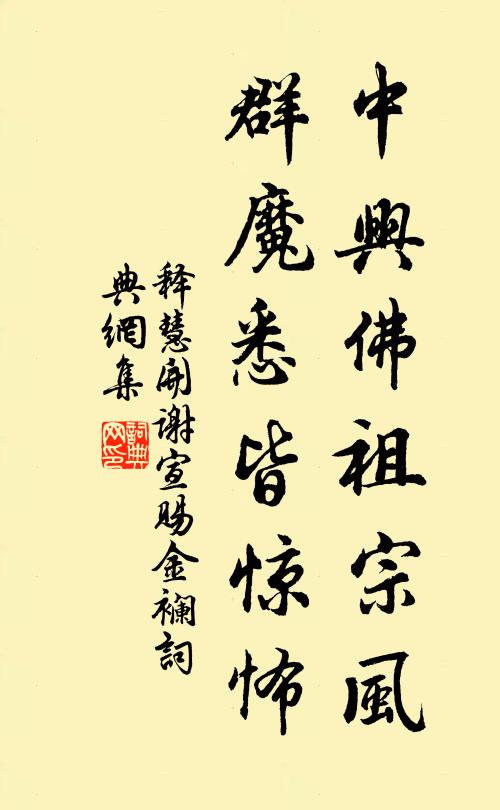 中興佛祖宗風
群魔悉皆惊怖
释慧開谢宣賜金襕詞
典網集
詞典
网印